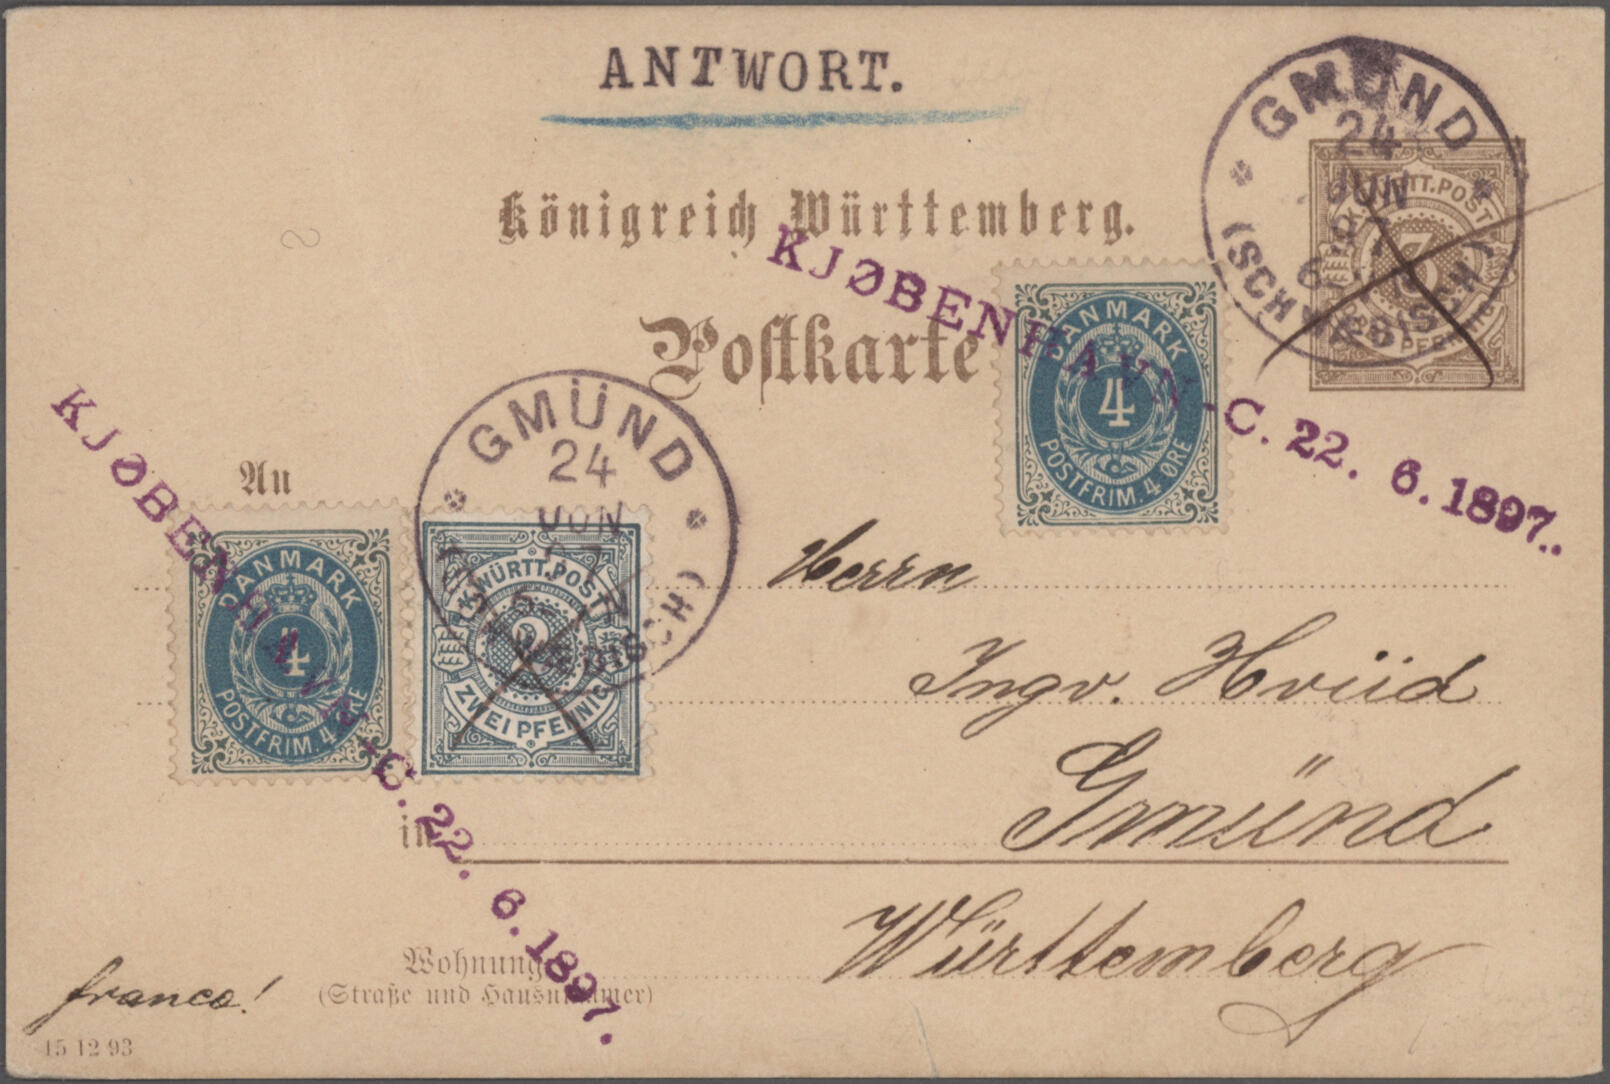 ANTWORT.
Königreich Württemberg.
Postkarte
GMÜND
24
JUN
97
(SCHWÄBISCH)
K. WÜRTT. POST
3
KJØBENHAVN-C. 22. 6. 1897.
DANMARK
4
POSTFRIM. 4 ØRE
An
GMÜND
24
JUN
97
(SCHWÄBISCH)
KJØBENHAVN-C. 22. 6. 1897.
DANMARK
4
POSTFRIM. 4 ØRE
K. WÜRTT. POST
2
ZWEI PFENNIG
Herrn
Ingv. Hviid
in
Gmünd
Württemberg
Wohnung
(Straße und Hausnummer)
franco!
15 12 93